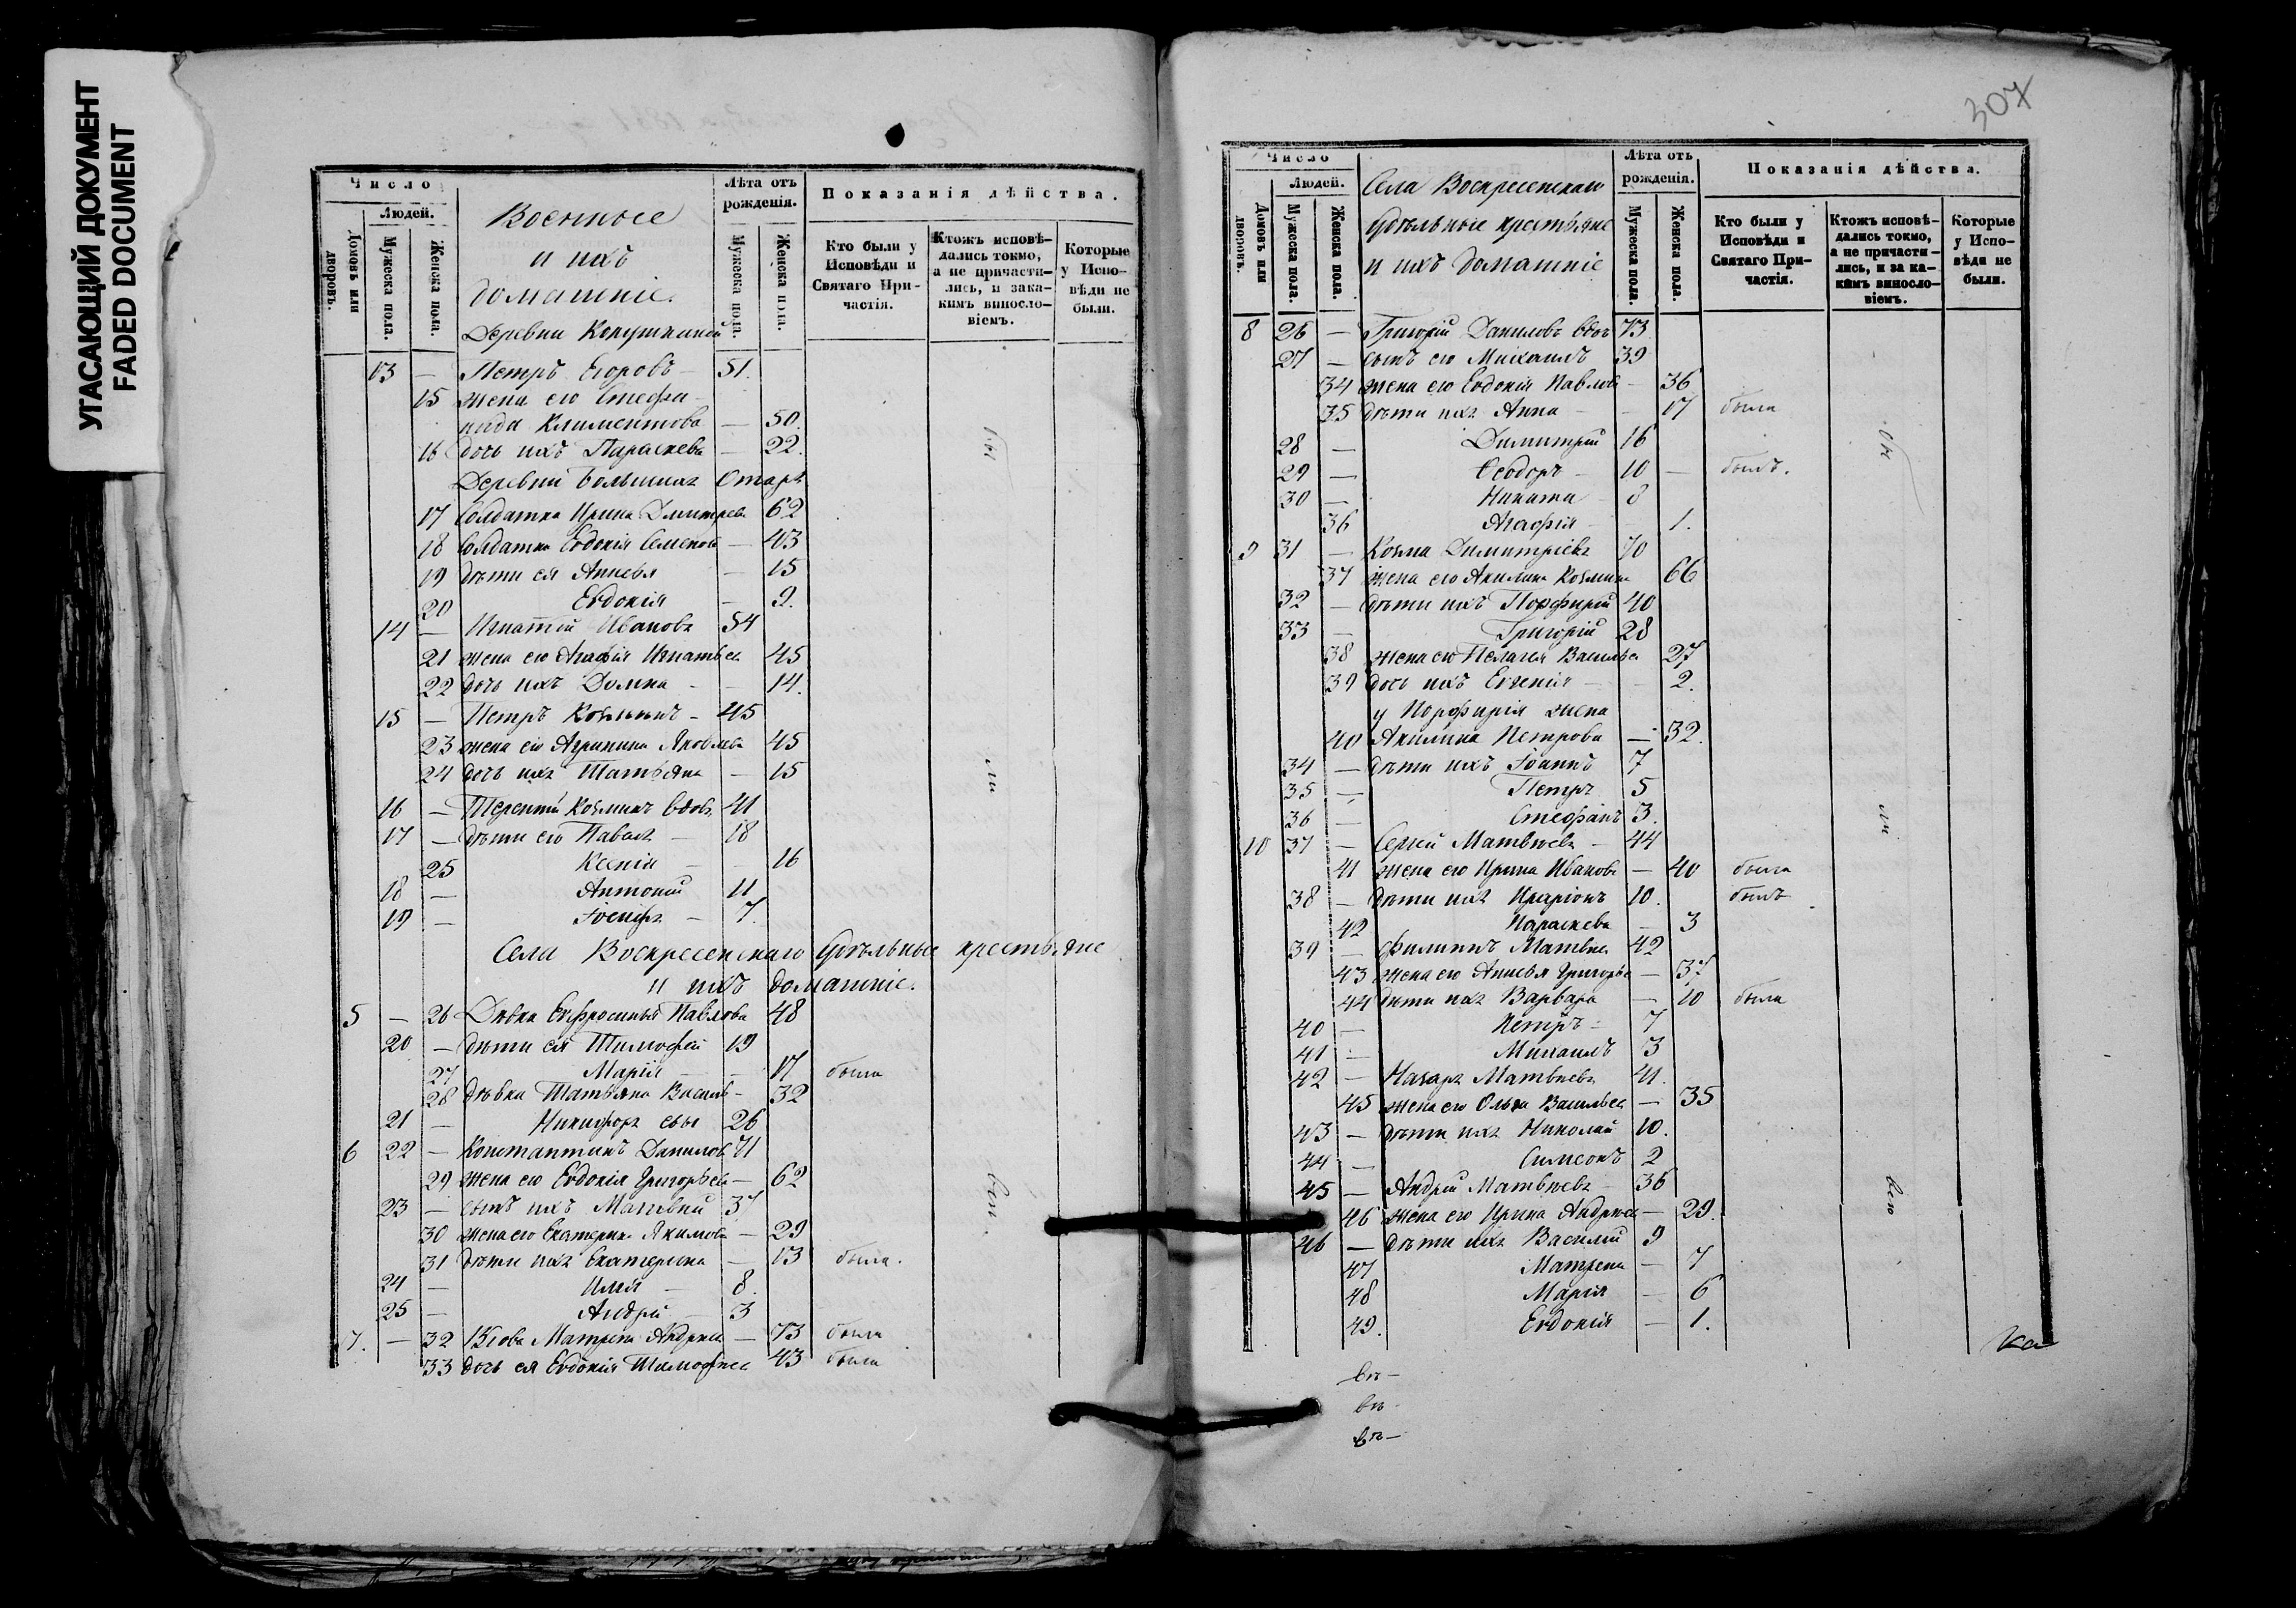 УГАСАЮЩИЙ ДОКУМЕНТ
FADED DOCUMENT
Число
Людей.
Домовъ или дворовъ.
Мужеска пола.
Женска пола.
Военные
и ихъ
домашніе.
Лѣта отъ рожденія.
Мужеска пола.
Женска пола.
Показанія дѣйства.
Кто были у Исповѣди и Святаго Причастія.
Ктожъ исповѣдались токмо, а не причастились, и закакимъ винословіемъ.
Которые у Исповѣди не были.
Деревни Кокушкиной
13 — Петръ Егоровъ — 51.
15 жена его Стефа-
нида Климентова — 50.
16 дочь ихъ Параскева — 22.
Деревни Большихъ Отаръ
17 Солдатка Ирина Дмитрева 62
18 Солдатка Евдокія Семенова — 43
19 дѣти ея Анисья — 15
20 Евдокія — 9.
14 — Игнатій Ивановъ 54
21 жена его Агафія Игнатьева 45
22 дочь ихъ Домна — 14.
15 — Петръ Козьминъ — 45
23 жена его Агрипина Яковлева 45
24 дочь ихъ Татьяна — 15
16 — Терентій Козминъ вдовъ 41
17 — дѣти его Павелъ — 18
25 Ксенія — 16
18 — Антоній 11
19 — Іосифъ — 7.
Села Воскресенскаго Удѣльные крестьяне
и ихъ домашніе.
5 — 26 Дѣвка Евфросинья Павлова 48
20 — дѣти ея Тимофей 19
27 Марія — 17 была
28 дѣвка Татьяна Василь- 32
21 — Никифоръ 26
6 22 — Константинъ Даниловъ 71
29 жена его Евдокія Григорьева — 62
23 — сынъ ихъ Матвѣй 37
30 жена его Екатерина Якимова — 29
31 дѣти ихъ Екатерина — 13 была.
24 — Илія — 8.
25 — Андрей — 3
7. — 32 Вдова Матрена Андреева — 73 была
33 дочь ея Евдокія Тимофеева 43 была
бы
ли
вси.
307
Число
Людей.
Домовъ или дворовъ.
Мужеска пола.
Женска пола.
Села Воскресенскаго
Удѣльные крестьяне
и ихъ домашніе
Лѣта отъ рожденія.
Мужеска пола.
Женска пола.
Показанія дѣйства.
Кто были у Исповѣди и Святаго Причастія.
Ктожъ исповѣдались токмо, а не причастились, и за какимъ винословіемъ.
Которые у Исповѣди не были.
8 26 — Григорій Даниловъ вдовъ 73
27 — сынъ его Михаилъ 39
34 жена его Евдокія Павлова — 36
35 дѣти ихъ Анна — 17 была
28 — Димитрій 16
29 — Ѳеодоръ — 10 — былъ.
30 — Никита — 8
36 Агафія — 1.
9 31 — Козма Димитріевъ 70
37 жена его Акилина Козмина 66
32 — дѣти ихъ Порфирій 40
33 — Григорій 28
38 жена его Пелагея Васильева 27
39 дочь ихъ Евгенія — 2.
у Порфирія жена
40 Акилина Петрова — 32.
34 — дѣти ихъ Іоаннъ 7
35 — Петръ 5
36 — Стефанъ 3.
10 37 — Сергей Матвѣевъ — 44
41 жена его Ирина Иванова — 40 была
38 — дѣти ихъ Иларіонъ 10. былъ
42 Параскева — 3
39 — Филиппъ Матвѣевъ 42
43 жена его Анисья Григорьева — 37
44 дѣти ихъ Варвара — 10 была
40 — Петръ — 7
41 — Михаилъ 3
42 — Назаръ Матвѣевъ 41.
45 жена его Ольга Васильева — 35
43 — дѣти ихъ Николай 10.
44 — Симеонъ 2
45 — Андрей Матвѣевъ — 36
46 жена его Ирина Андреева — 29.
46 — дѣти ихъ Василій 9
47 Матрена — 7
48 Марія — 6
49. Евдокія — 1.
бы
ли